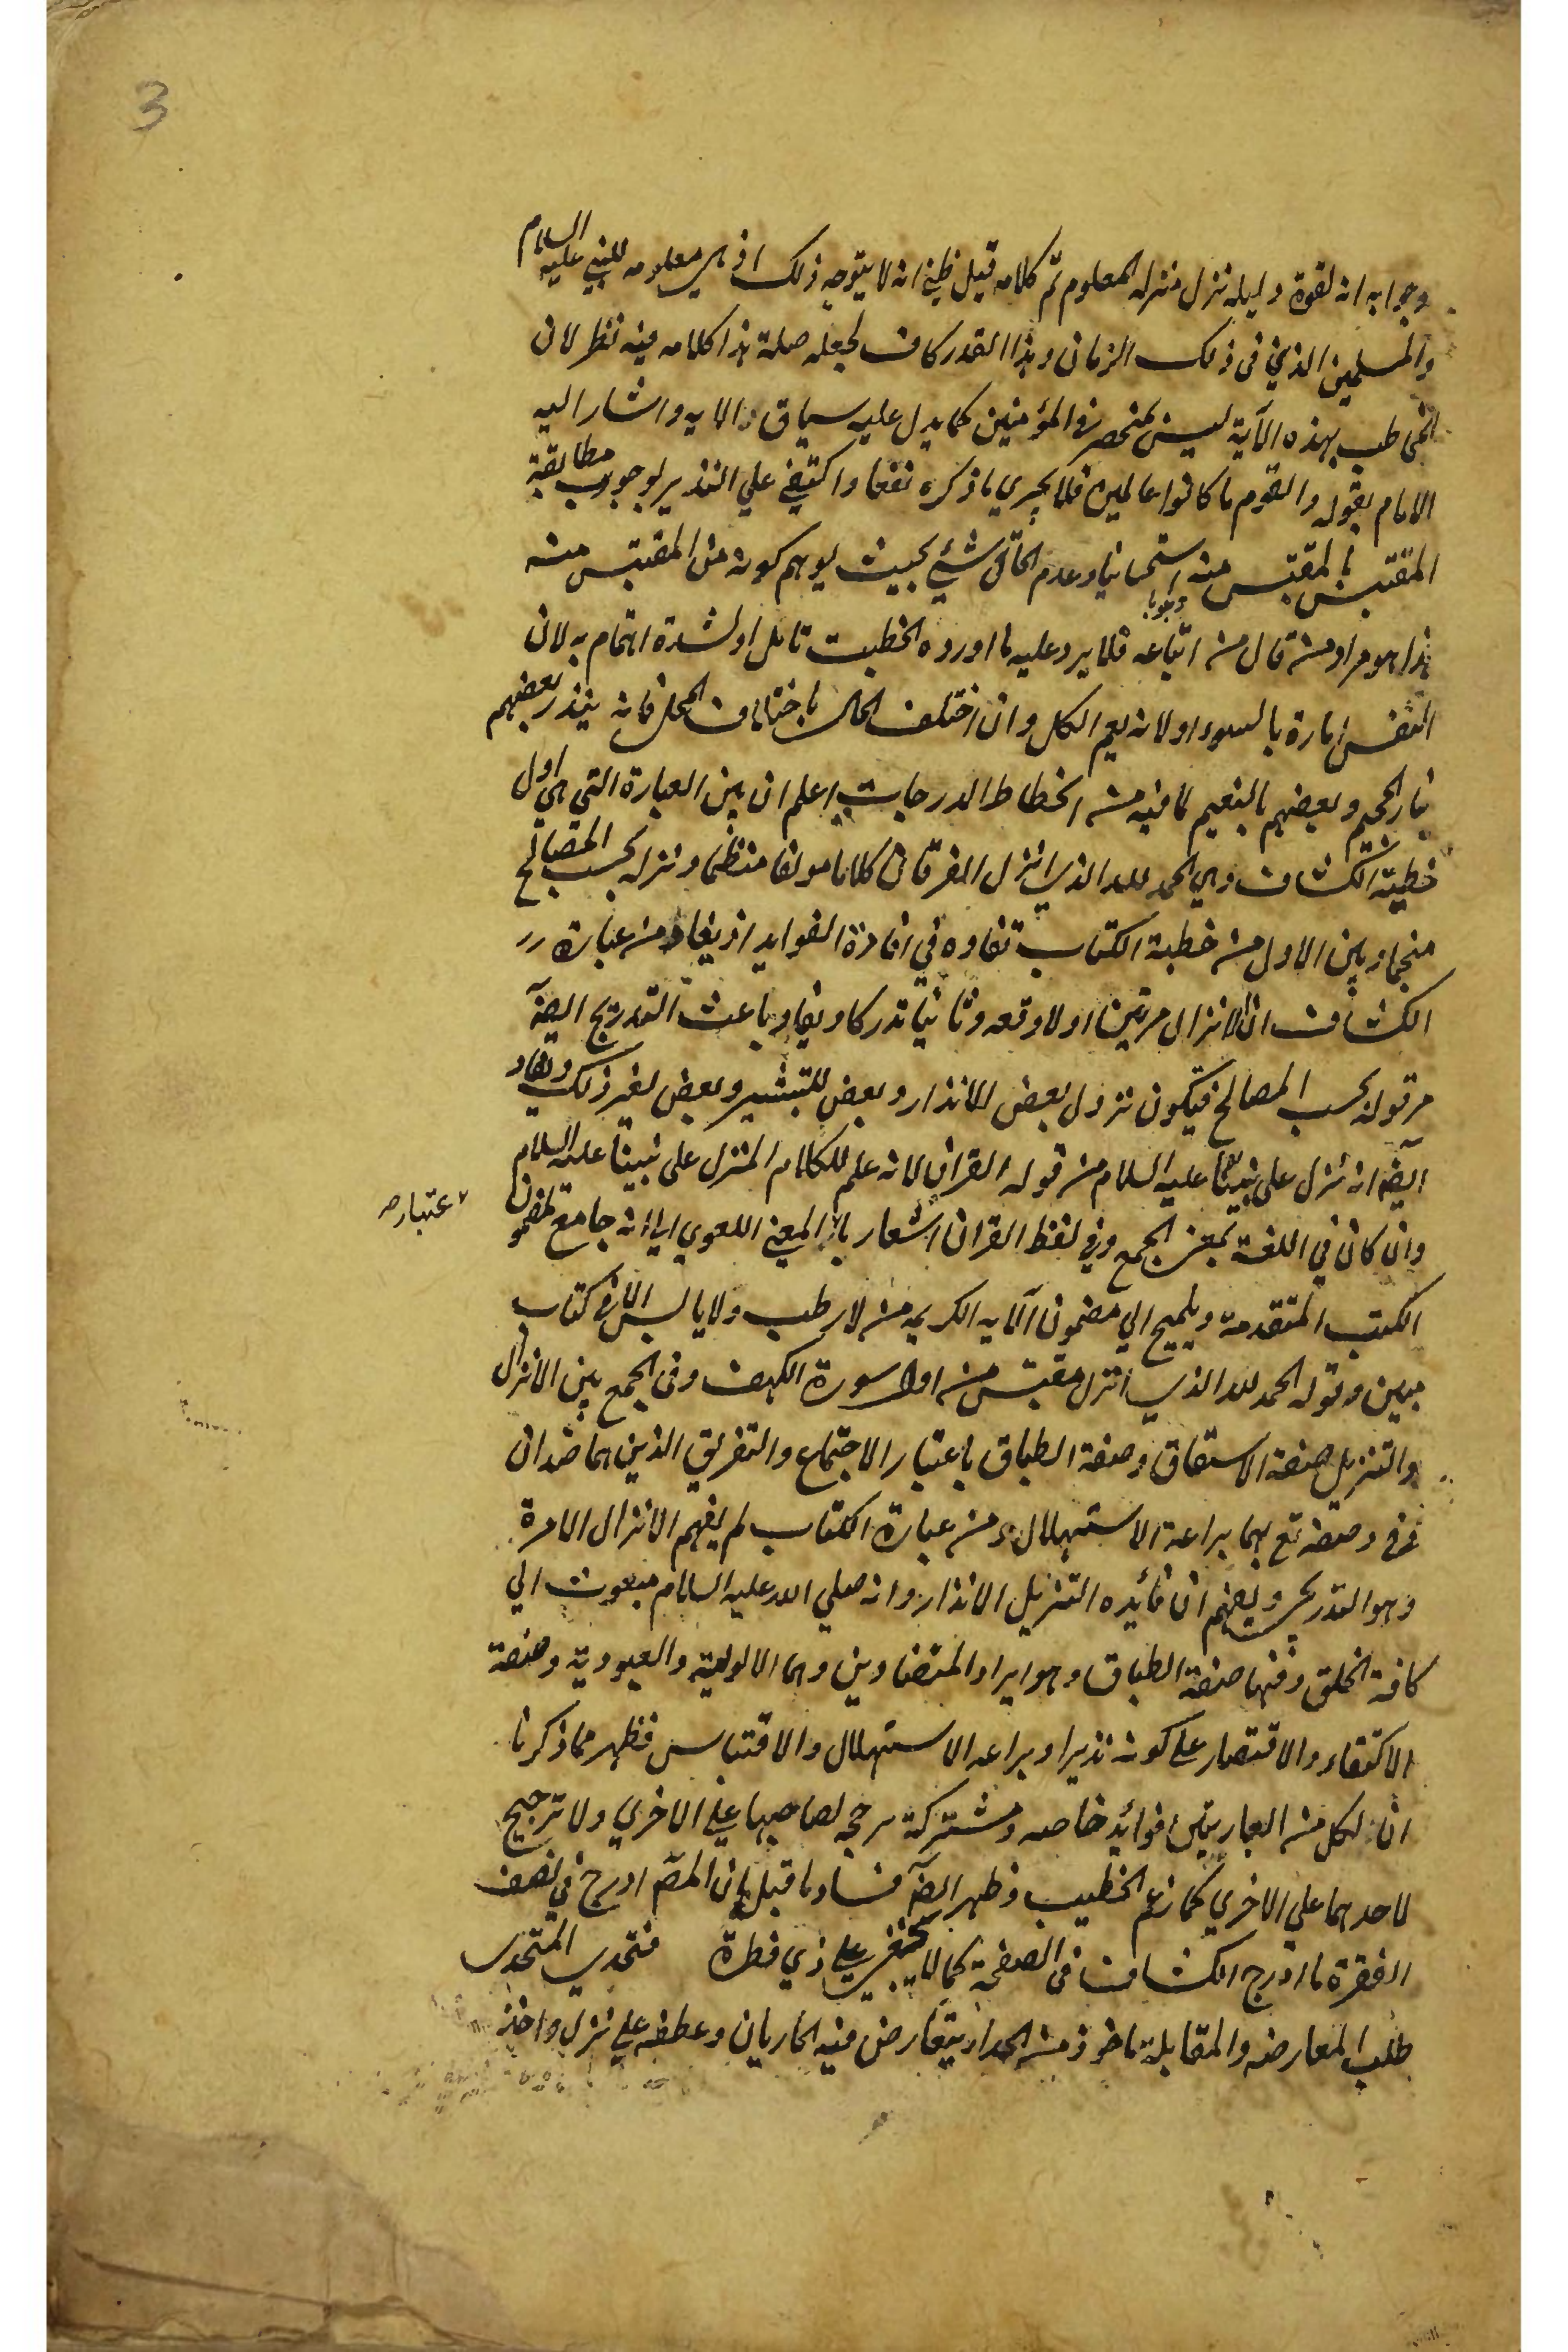 3
وجوابه انه لقوة دليله نزل منزلة المعلوم تم كلامه قيل ظني انه لا يتوجه ذلك اذ هي معلومه للنبي عليه السلام
والمسلمين الذي في ذلك الزمان وهذا القدر كاف لجعله صلة هذا كلامه فيه نظر لان
المخاطب بهذه الآية ليس بمنحصر في المؤمنين كما يدل عليه سياق الايه واشار اليه
الامام بقوله والقوم ما كانوا عالمين فلا يجري ما ذكره نفعا واكتفي علي النذير لوجوب مطابقة
المقتبس بالمقتبس منه استحسانيا وعدم الحاق شئ بحيث يوهم كونه من المقتبس منه
وجوبا
هذا هو مراد من قال من اتباعه فلا يرد عليه ما اورده الخطيب تامل او لشدة اهتمام به لان
النفس امارة بالسوء او لانه يعم الكل وان اختلف الحال باختلاف المحل فانه ينذر بعضهم
بنار الجحيم وبعضهم بالنعيم لما فيه من انحطاط الدرجات اعلم ان بين العبارة التي هي اول
خطبة الكشاف وهي الحمد لله الذي انزل الفرقان كلاما مولفا منظما ونزله بحسب المصالح
منجما وبين الاول من خطبة الكتاب تفاوة في افادة الفوايد اذ يفاد من عبارة
الكشاف ان الانزال مرتين اولا دفعه وثانيا تدركا ويفاد باعث التدريج ايضآ
من قوله بحسب المصالح فيكون نزول بعض للانذار وبعض للتبشير وبعض لغير ذلك ويفاد
ايضآ انه نزل على نبينا عليه السلام من قوله القران لانه علم للكلام المنزل على نبينا عليه السلام
وان كان في اللغة بمعنى الجمع وفي لفظ القران اشعار بالمعني اللغوي اي انه جامع لمضمون
عتباره
الكتب المتقدمة ويلميح الي مضمون الآيه الكريمه من لا رطب ولا يابس الا في كتاب
مبين وقوله الحمد لله الذي انزل مقتبس من اول سورة الكهف وفي الجمع بين الانزال
والتنزيل صنعة الاشتقاق وصنعة الطباق باعتبار الاجتماع والتفريق الذين هما ضدان
بهما براعة الاستهلال ومن عبارة الكتاب لم يفهم الانزال الا مرة
وهو التدريجي ويفهم ان فائده التنزيل الانذار وانه صلي الله عليه السلام مبعوث الي
كافة الخلق وفيها صنعة الطباق وهو ايراد المتضادين وهما الالوهية والعبودية وصنعة
الاكتفاء والاقتصار علي كونه نذيرا وبراعه الاستهلال والاقتباس فظهر مما ذكرنا
ان لكل من العبارتين فوائد خاصه ومشتركة مرجحه لصاحبها علي الاخري ولا ترجيح
لاحدهما علي الاخري كما زعم الخطيب وظهر ايضآ فساد ما قيل بان المصّ ادرج في نصف
الفقرة ما ادرج الكشاف في الصفحة كما لا يخفي علي ذي فطرة فتحدي التحدي
طلب المعارضه والمقابلة ماخوذ من الحداء يتعارض فيه الحاديان وعطفه علي نزل واخذ